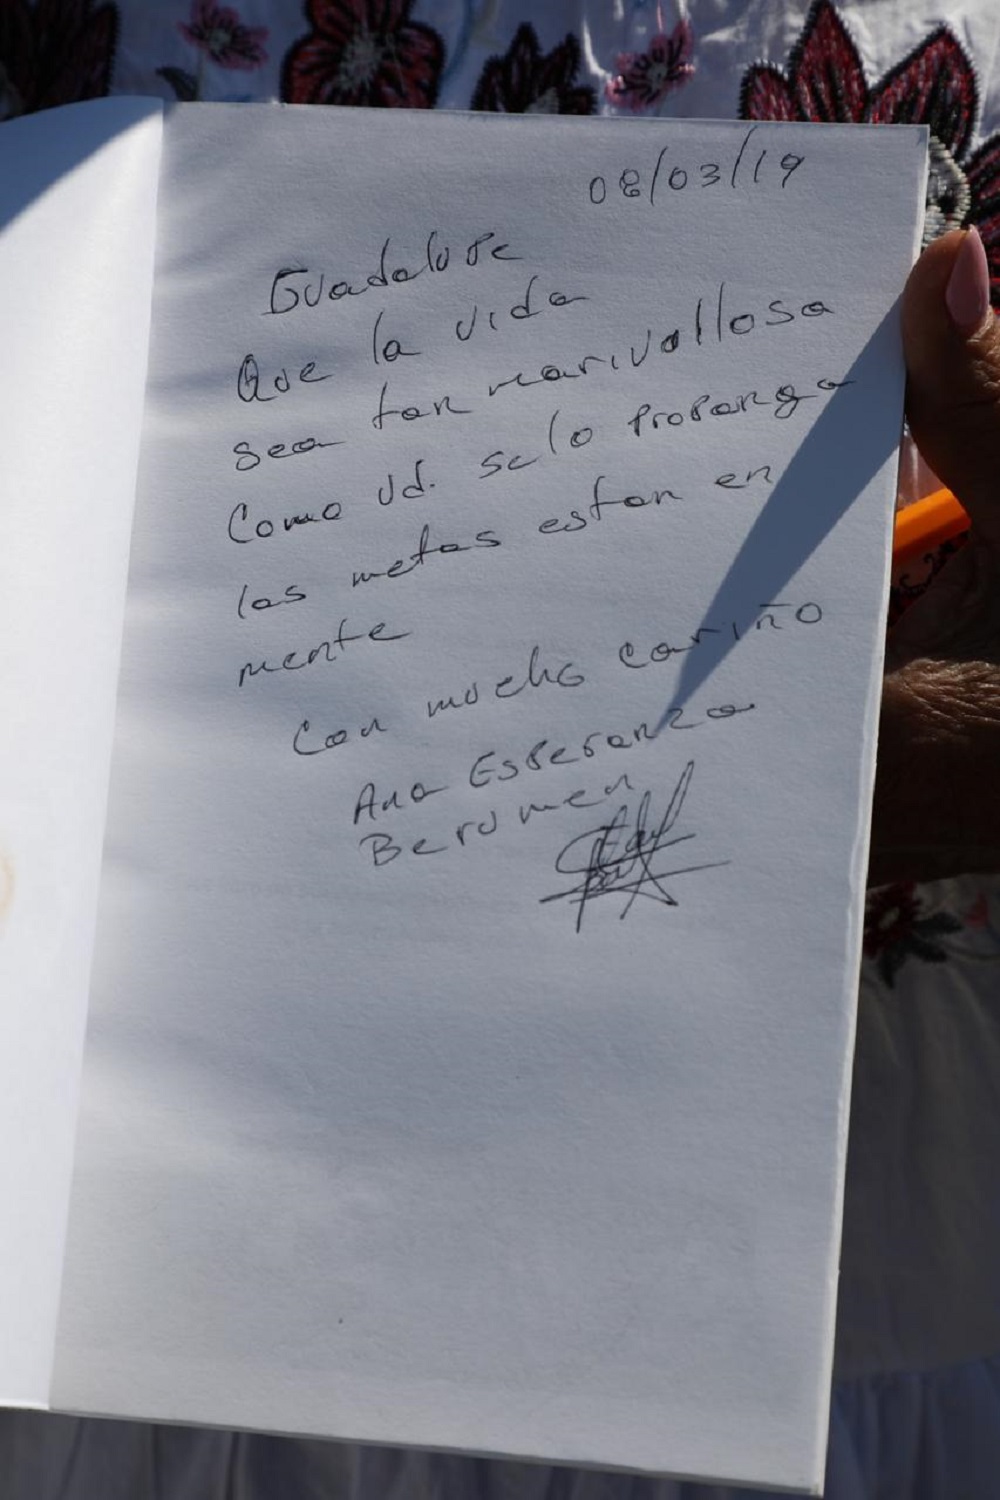 08/03/19
Guadalupe
Que la vida
sea tan marivallosa
Como Ud. se lo proponga
las metas estan en
mente
Con mucho cariño
Ana Esperanza
Berumen